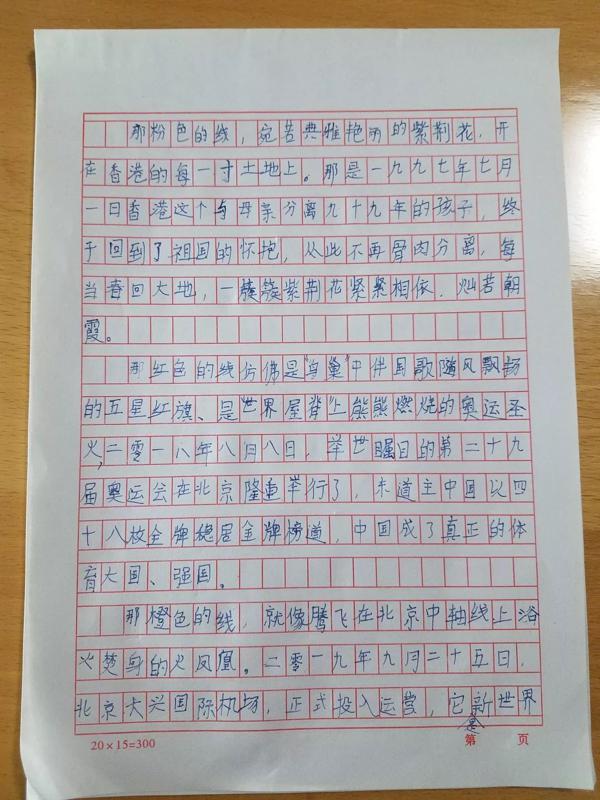 那粉色的线，宛若典雅艳丽的紫荆花，开
在香港的每一寸土地上。那是一九九七年七月
一日香港这个与母亲分离九十九年的孩子，终
于回到了祖国的怀抱，从此不再骨肉分离，每
当春回大地，一簇簇紫荆花紧紧相依，灿若朝
霞。
那红色的线仿佛是“鸟巢”中伴国歌随风飘扬
的五星红旗、是“世界屋脊”上熊熊燃烧的奥运圣
火，二零一八年八月八日，举世瞩目的第二十九
届奥运会在北京隆重举行了，东道主中国以四
十八枚金牌稳居金牌榜道，中国成了真正的体
育大国、强国。
那橙色的线，就像腾飞在北京中轴线上浴
火楚身的火凤凰。二零一九年九月二十五日，
北京大兴国际机场，正式投入运营，它是新世界
20×15=300
第 页